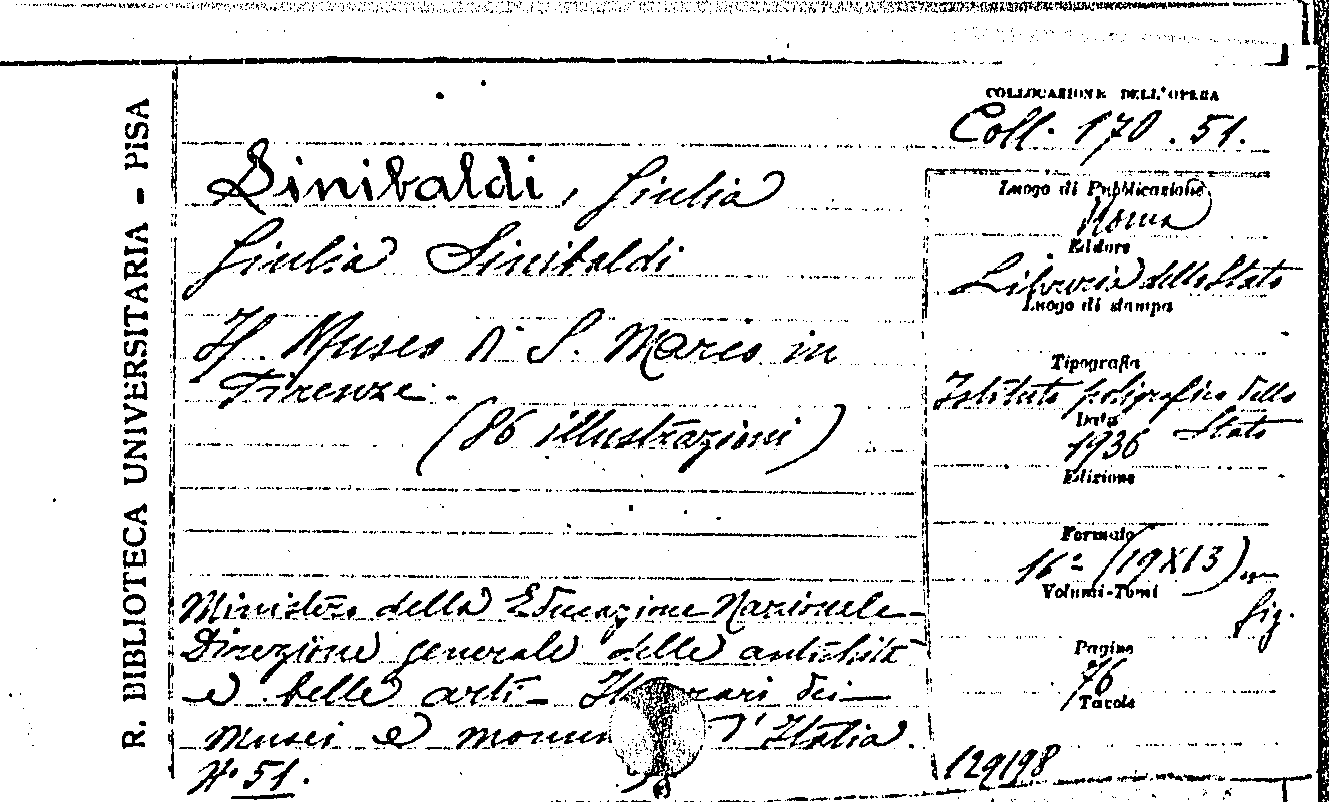 R. BIBLIOTECA UNIVERSITARIA - PISA
COLLOCAZIONE DELL'OPERA
Coll. 170.51.
Sinibaldi, Giulia
Giulia Sinibaldi
Il Museo di S. Marco in
Firenze.
(86 illustrazioni)
Ministero della Educazione Nazionale-
Direzione generale delle antichità
e belle arti- dei
Musei e d'Italia.
N° 51.
Luogo di Pubblicazione
Roma
Editore
Libreria dello Stato
Luogo di stampa
Tipografia
Istituto poligrafico dello
Stato
Data
1936
Edizione
Formato
16° (19X13)
Volumi-Tomi
fig.
Pagine
76
Tavole
129198